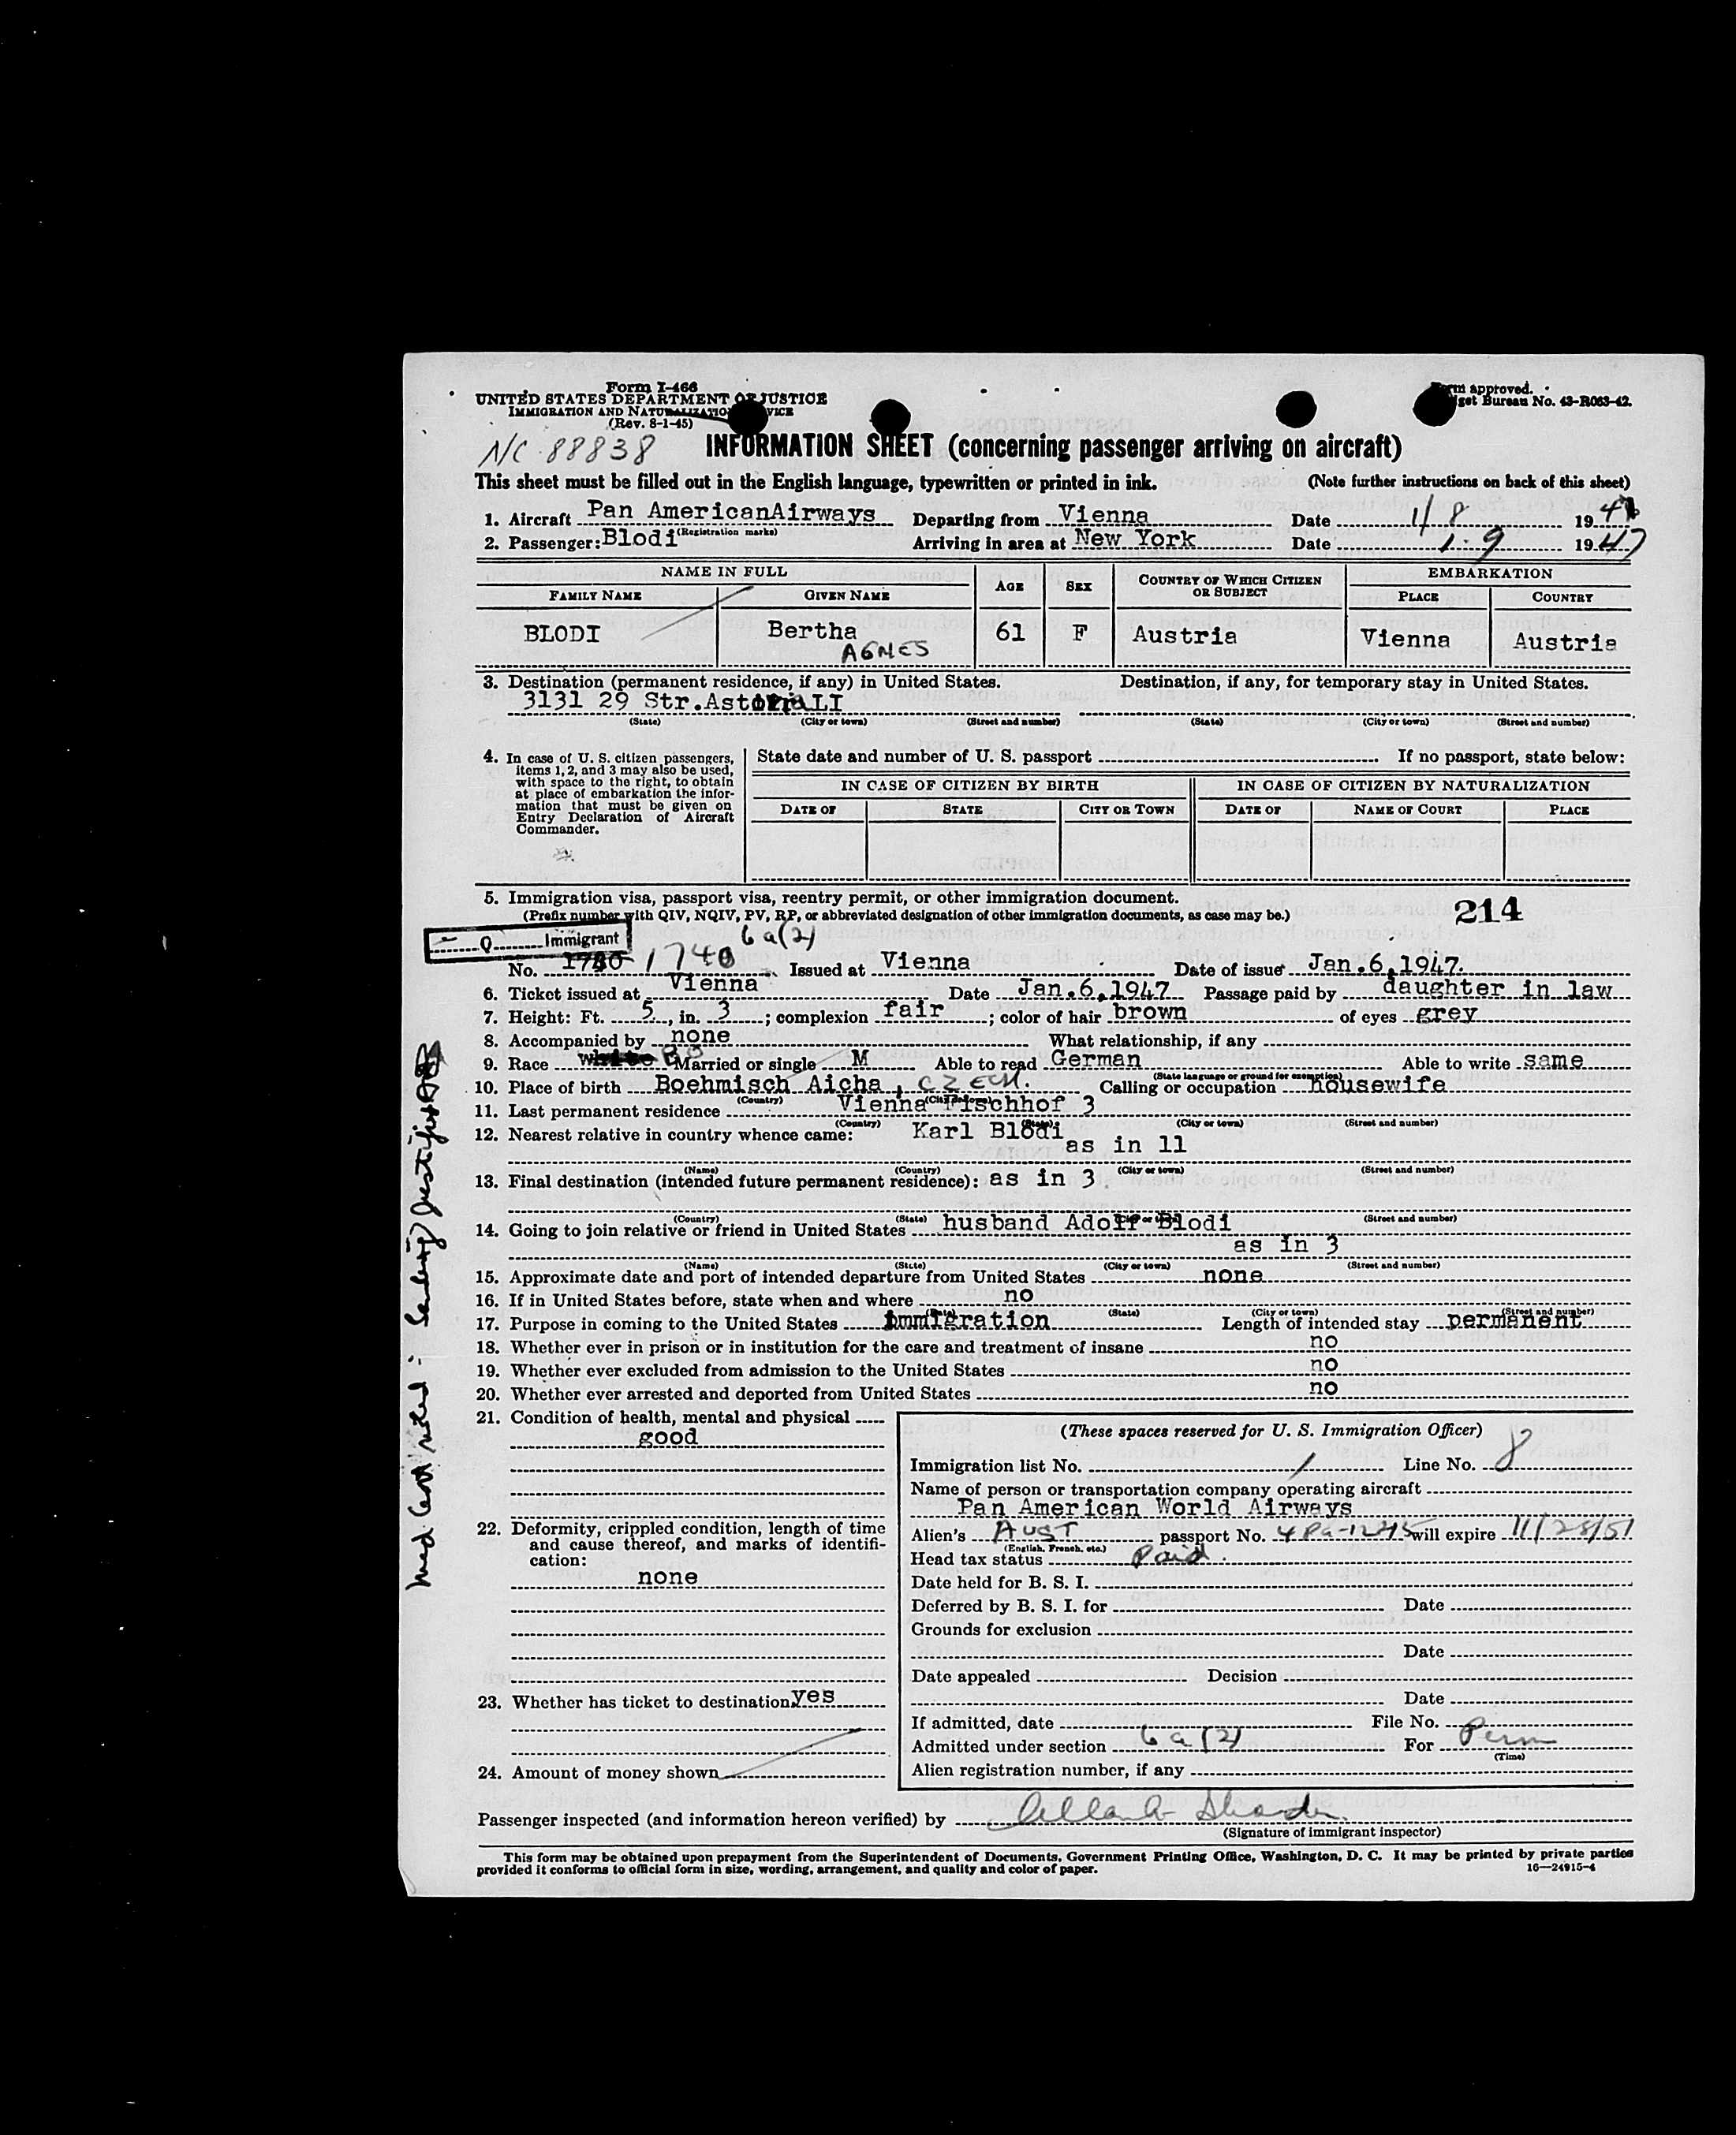 Form I-466
UNITED STATES DEPARTMENT OF JUSTICE
IMMIGRATION AND NATURALIZATION SERVICE
(Rev. 8-1-45)
Form approved.
Budget Bureau No. 43-R063-42.
NC 88838
INFORMATION SHEET (concerning passenger arriving on aircraft)
This sheet must be filled out in the English language, typewritten or printed in ink. (Note further instructions on back of this sheet)
1. Aircraft Pan AmericanAirways Departing from Vienna Date 1/8 1947
(Registration marks)
2. Passenger: Blodi Arriving in area at New York Date 1.9 1947
NAME IN FULL AGE SEX COUNTRY OF WHICH CITIZEN OR SUBJECT EMBARKATION
FAMILY NAME GIVEN NAME PLACE COUNTRY
BLODI Bertha 61 F Austria Vienna Austria
AGNES
3. Destination (permanent residence, if any) in United States. Destination, if any, for temporary stay in United States.
3131 29 Str.Astoria LI
(State) (City or town) (Street and number) (State) (City or town) (Street and number)
4. In case of U. S. citizen passengers, items 1, 2, and 3 may also be used, with space to the right, to obtain at place of embarkation the information that must be given on Entry Declaration of Aircraft Commander.
State date and number of U. S. passport If no passport, state below:
IN CASE OF CITIZEN BY BIRTH IN CASE OF CITIZEN BY NATURALIZATION
DATE OF STATE CITY OR TOWN DATE OF NAME OF COURT PLACE
5. Immigration visa, passport visa, reentry permit, or other immigration document.
(Prefix number with QIV, NQIV, PV, RP, or abbreviated designation of other immigration documents, as case may be.) 214
Q Immigrant 6a(2)
No. 1740 Issued at Vienna Date of issue Jan.6,1947.
6. Ticket issued at Vienna Date Jan.6,1947 Passage paid by daughter in law
7. Height: Ft. 5, in. 3; complexion fair; color of hair brown of eyes grey
8. Accompanied by none What relationship, if any
9. Race white BO Married or single M Able to read German Able to write same
(State language or ground for exemption)
10. Place of birth Boehmisch Aicha, CZECH. Calling or occupation housewife
(Country) (City or town)
11. Last permanent residence Vienna Fischhof 3
(Country) (State) (City or town) (Street and number)
12. Nearest relative in country whence came: Karl Blodi
as in 11
(Name) (Country) (City or town) (Street and number)
13. Final destination (intended future permanent residence): as in 3.
(Country) (State) (City or town) (Street and number)
14. Going to join relative or friend in United States husband Adolf Blodi
as in 3
(Name) (State) (City or town) (Street and number)
15. Approximate date and port of intended departure from United States none
16. If in United States before, state when and where no
(Date) (State) (City or town) (Street and number)
17. Purpose in coming to the United States immigration Length of intended stay permanent
18. Whether ever in prison or in institution for the care and treatment of insane no
19. Whether ever excluded from admission to the United States no
20. Whether ever arrested and deported from United States no
21. Condition of health, mental and physical
good
22. Deformity, crippled condition, length of time and cause thereof, and marks of identification:
none
23. Whether has ticket to destination yes
24. Amount of money shown
(These spaces reserved for U. S. Immigration Officer)
Immigration list No. 1 Line No. 8
Name of person or transportation company operating aircraft
Pan American World Airways
Alien's AUST passport No. will expire 11/28/51
(English, French, etc.)
Head tax status Paid.
Date held for B. S. I.
Deferred by B. S. I. for Date
Grounds for exclusion
Date
Date appealed Decision
Date
If admitted, date File No.
Admitted under section 6a(2) For Perm
(Time)
Alien registration number, if any
Passenger inspected (and information hereon verified) by
(Signature of immigrant inspector)
This form may be obtained upon prepayment from the Superintendent of Documents, Government Printing Office, Washington, D. C. It may be printed by private parties
provided it conforms to official form in size, wording, arrangement, and quality and color of paper. 16—24915-4
Med Cert noted: